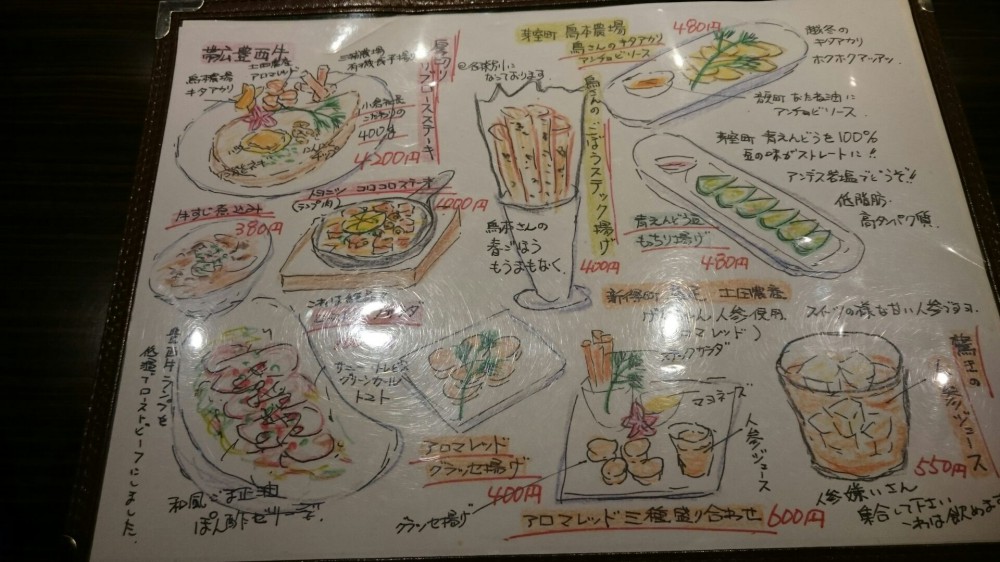 豊西牛
土田農産
アロマレッド
鳥本農場
キタアカリ
小倉社長
こだわりの
400g
4200円
ステーキ
@各米別に
なっております
芽室町 鳥本農場
鳥さんのキタアカリ
アンチョビソース
480円
越冬の
キタアカリ
ホクホクマーアン
アンチョビソース
鳥さんのごぼうスティック揚げ
400円
鳥本さんの
春ごぼう
もうまもなく
芽室町 青えんどうを100%
豆の味がストレートに!!
アンデス岩塩でどうぞ!!
低脂肪
高タンパク質
青えんどう豆
もっちり揚げ
480円
牛すじ煮込み
380円
コロコロステーキ
(ランプ肉)
1000円
サニー トレビス
グリーンカール
トマト
豊西牛ランプを
低温でローストビーフにしました。
和風ごま正油
ぽん酢ゼリーで。
アロマレッド
グラッセ揚げ
400円
土田農産
人参使用
(アロマレッド)
スティックサラダ
マヨネーズ
人参ジュース
グラッセ揚げ
アロマレッド三種盛り合わせ 600円
スイーツの様な甘い人参ですヨ
驚きの
人参ジュース
550円
人参嫌いさん
集合して下さい
これは飲めます